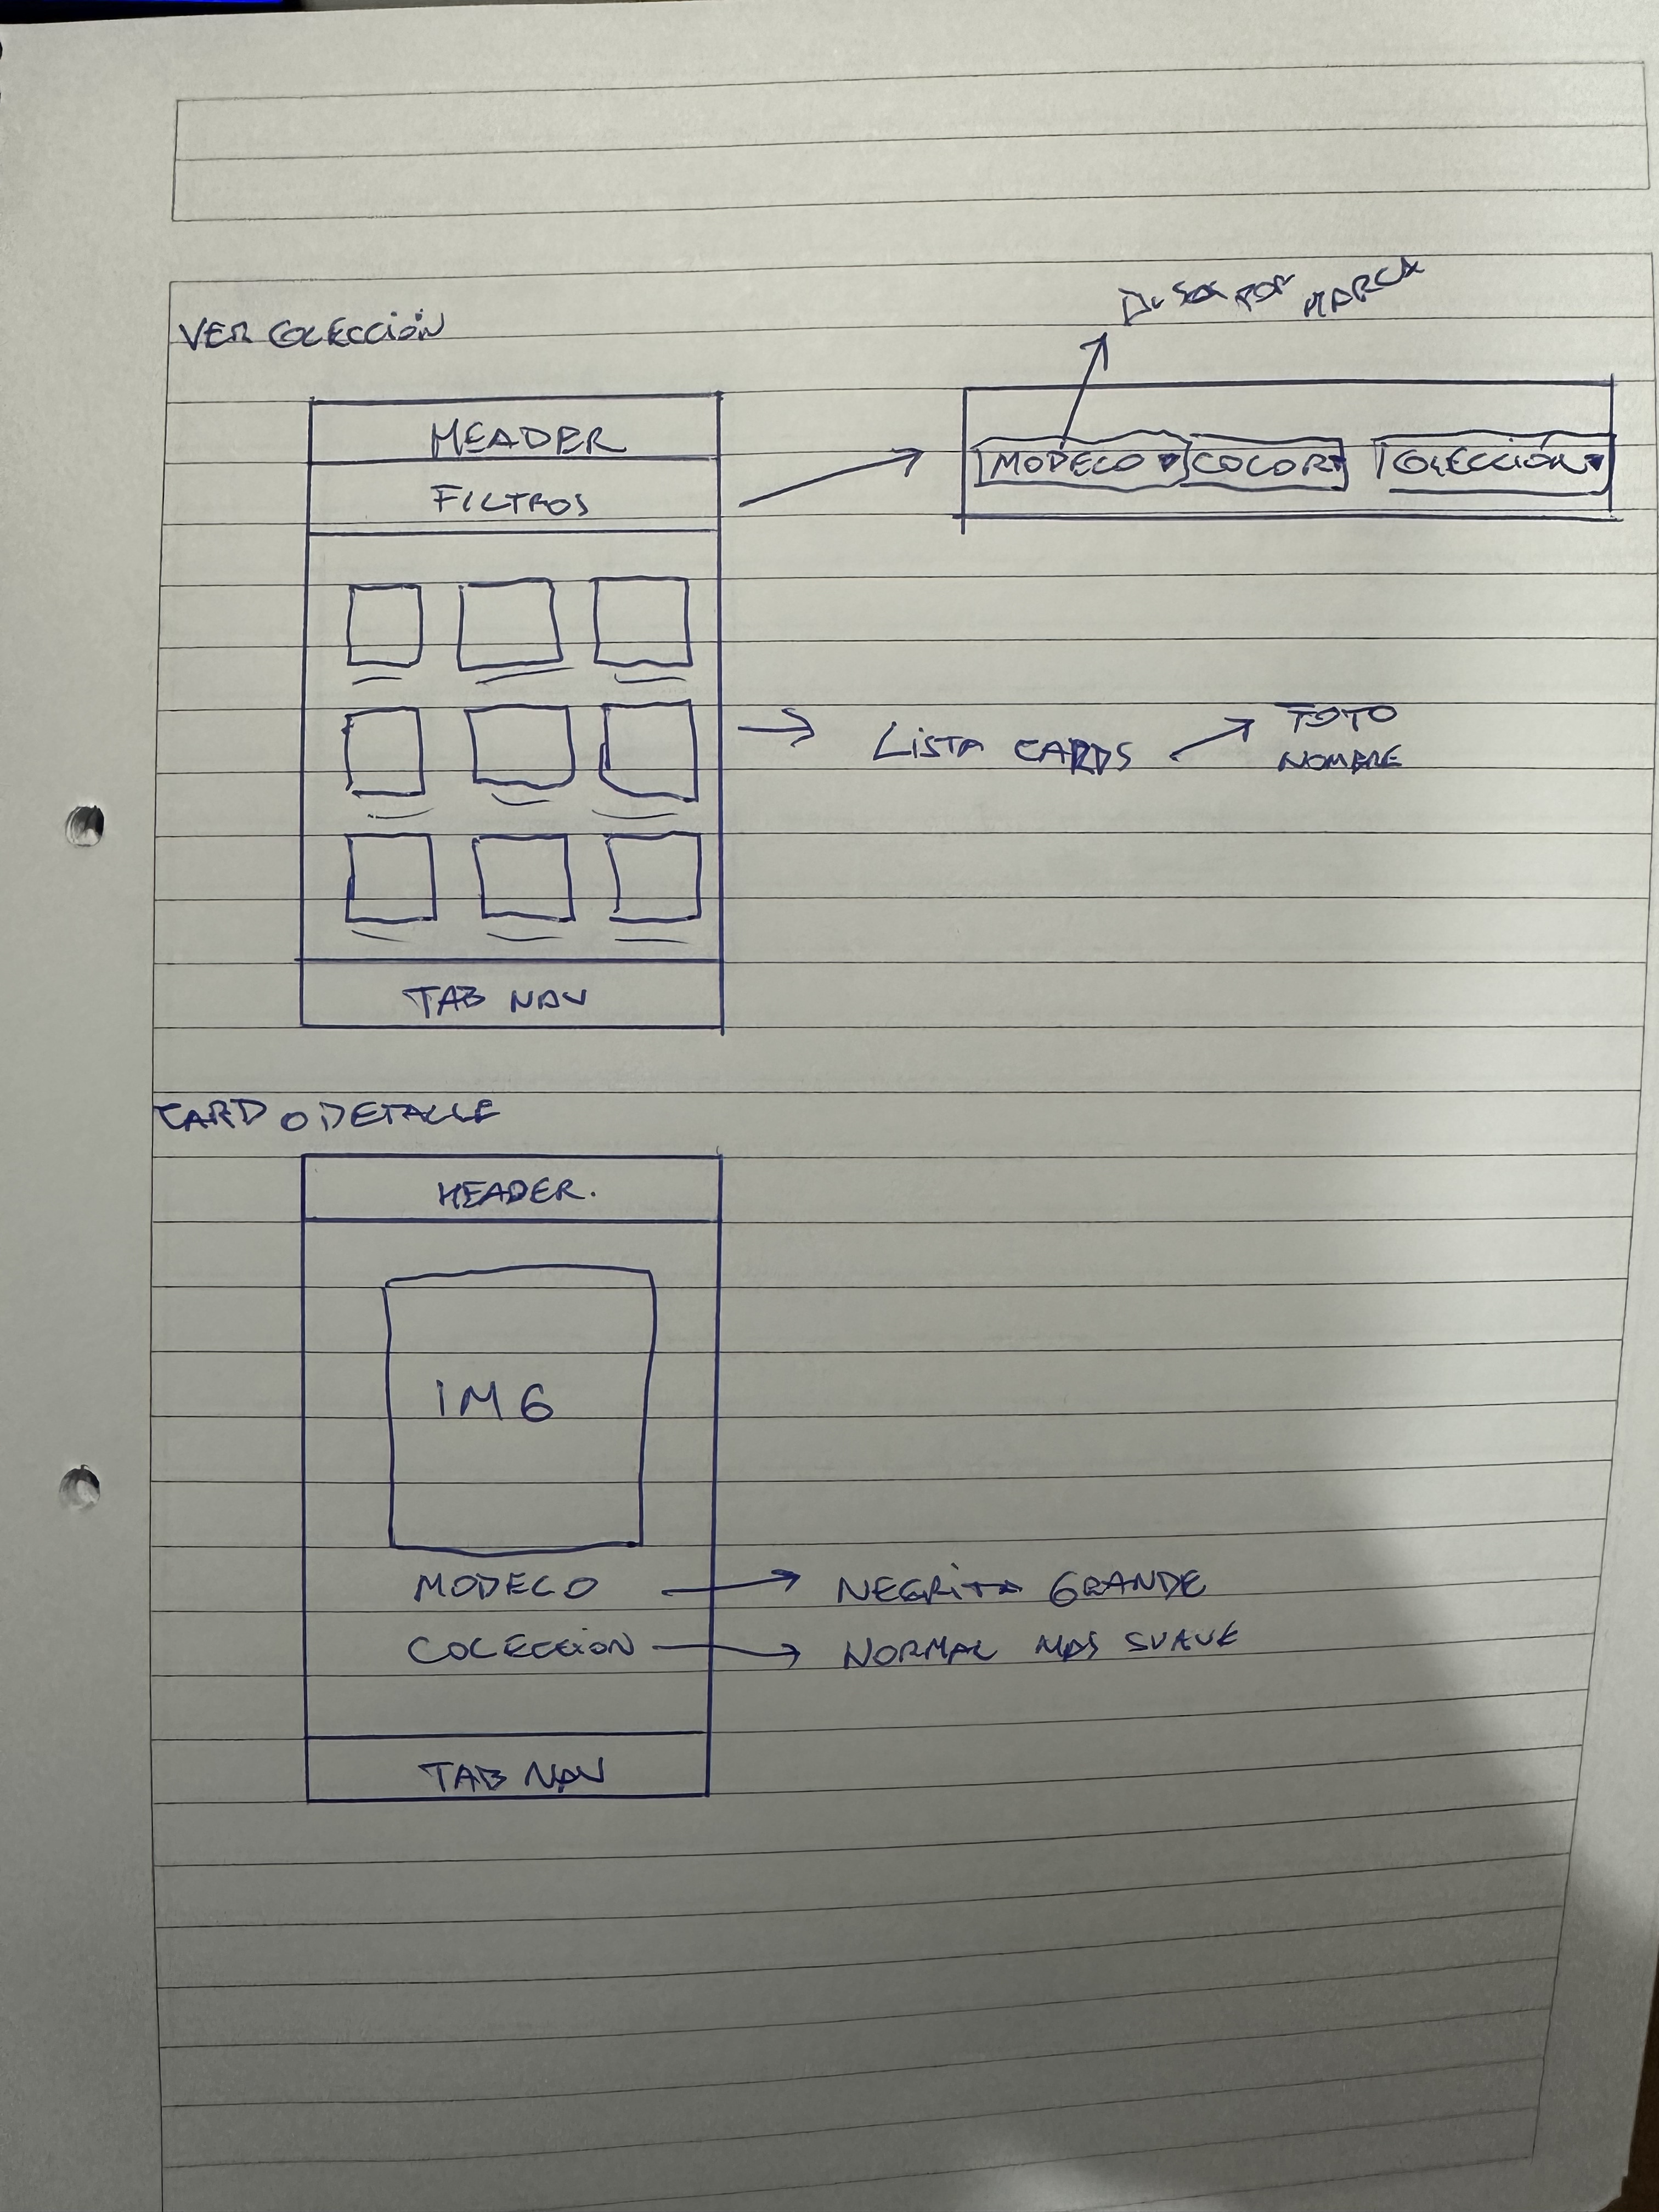 VER COLECCIÓN
POR MARCA
HEADER
FILTROS
MODELO COLOR COLECCIÓN
LISTA CARDS
FOTO
NOMBRE
TAB NAV
CARD O DETALLE
HEADER.
IMG
MODELO
NEGRITA GRANDE
COLECCION
NORMAL MAS SUAVE
TAB NAV